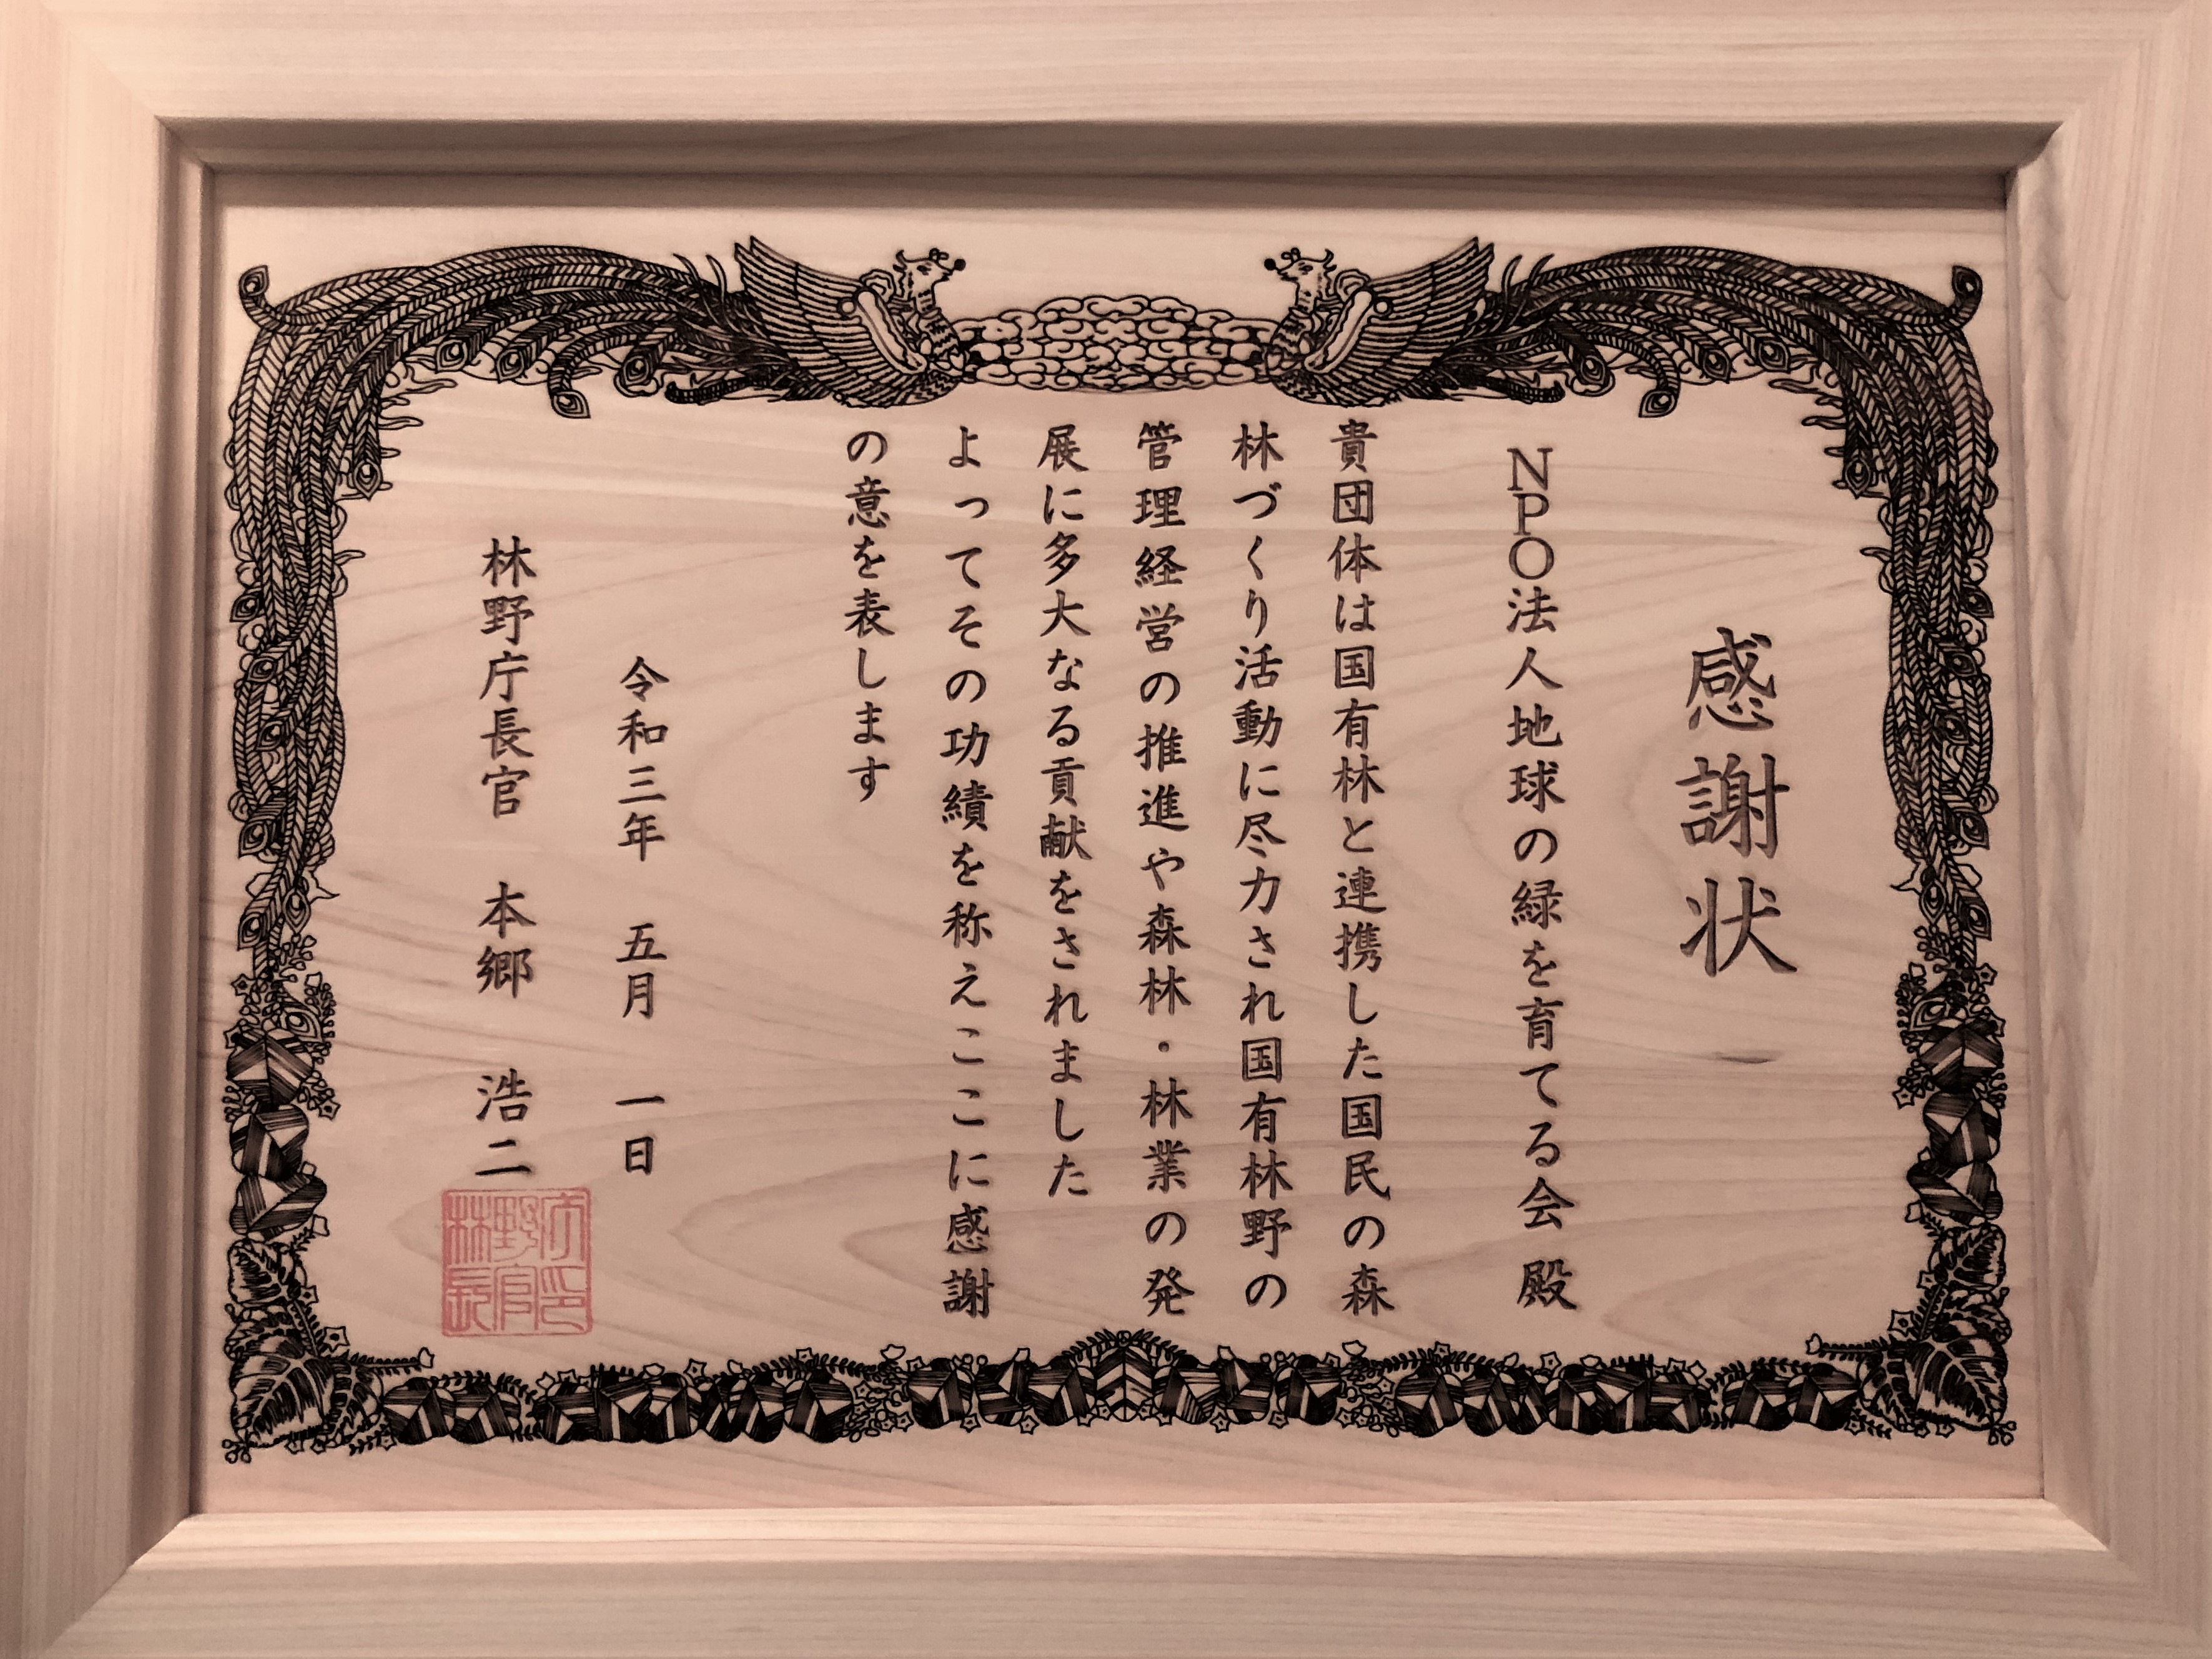 感謝状
NPO法人地球の緑を育てる会 殿
貴団体は国有林と連携した国民の森
林づくり活動に尽力され国有林野の
管理経営の推進や森林・林業の発
展に多大なる貢献をされました
よってその功績を称えここに感謝
の意を表します
令和三年 五月 一日
林野庁長官 本郷 浩二
林野庁
長官印